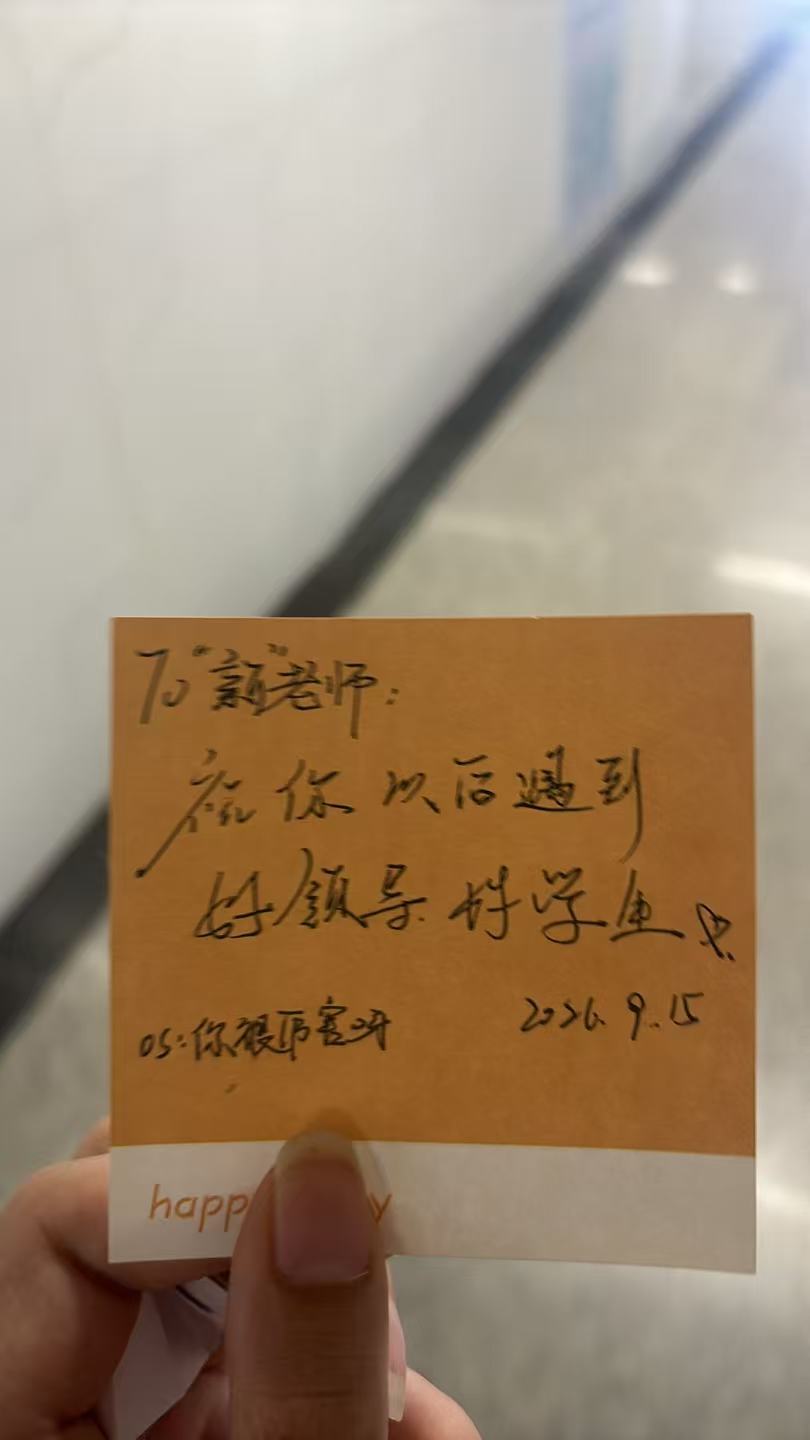 To "颜"老师:
祝你以后遇到
好领导 好学生
OS:你很厉害呀
2026.9.15
happ y